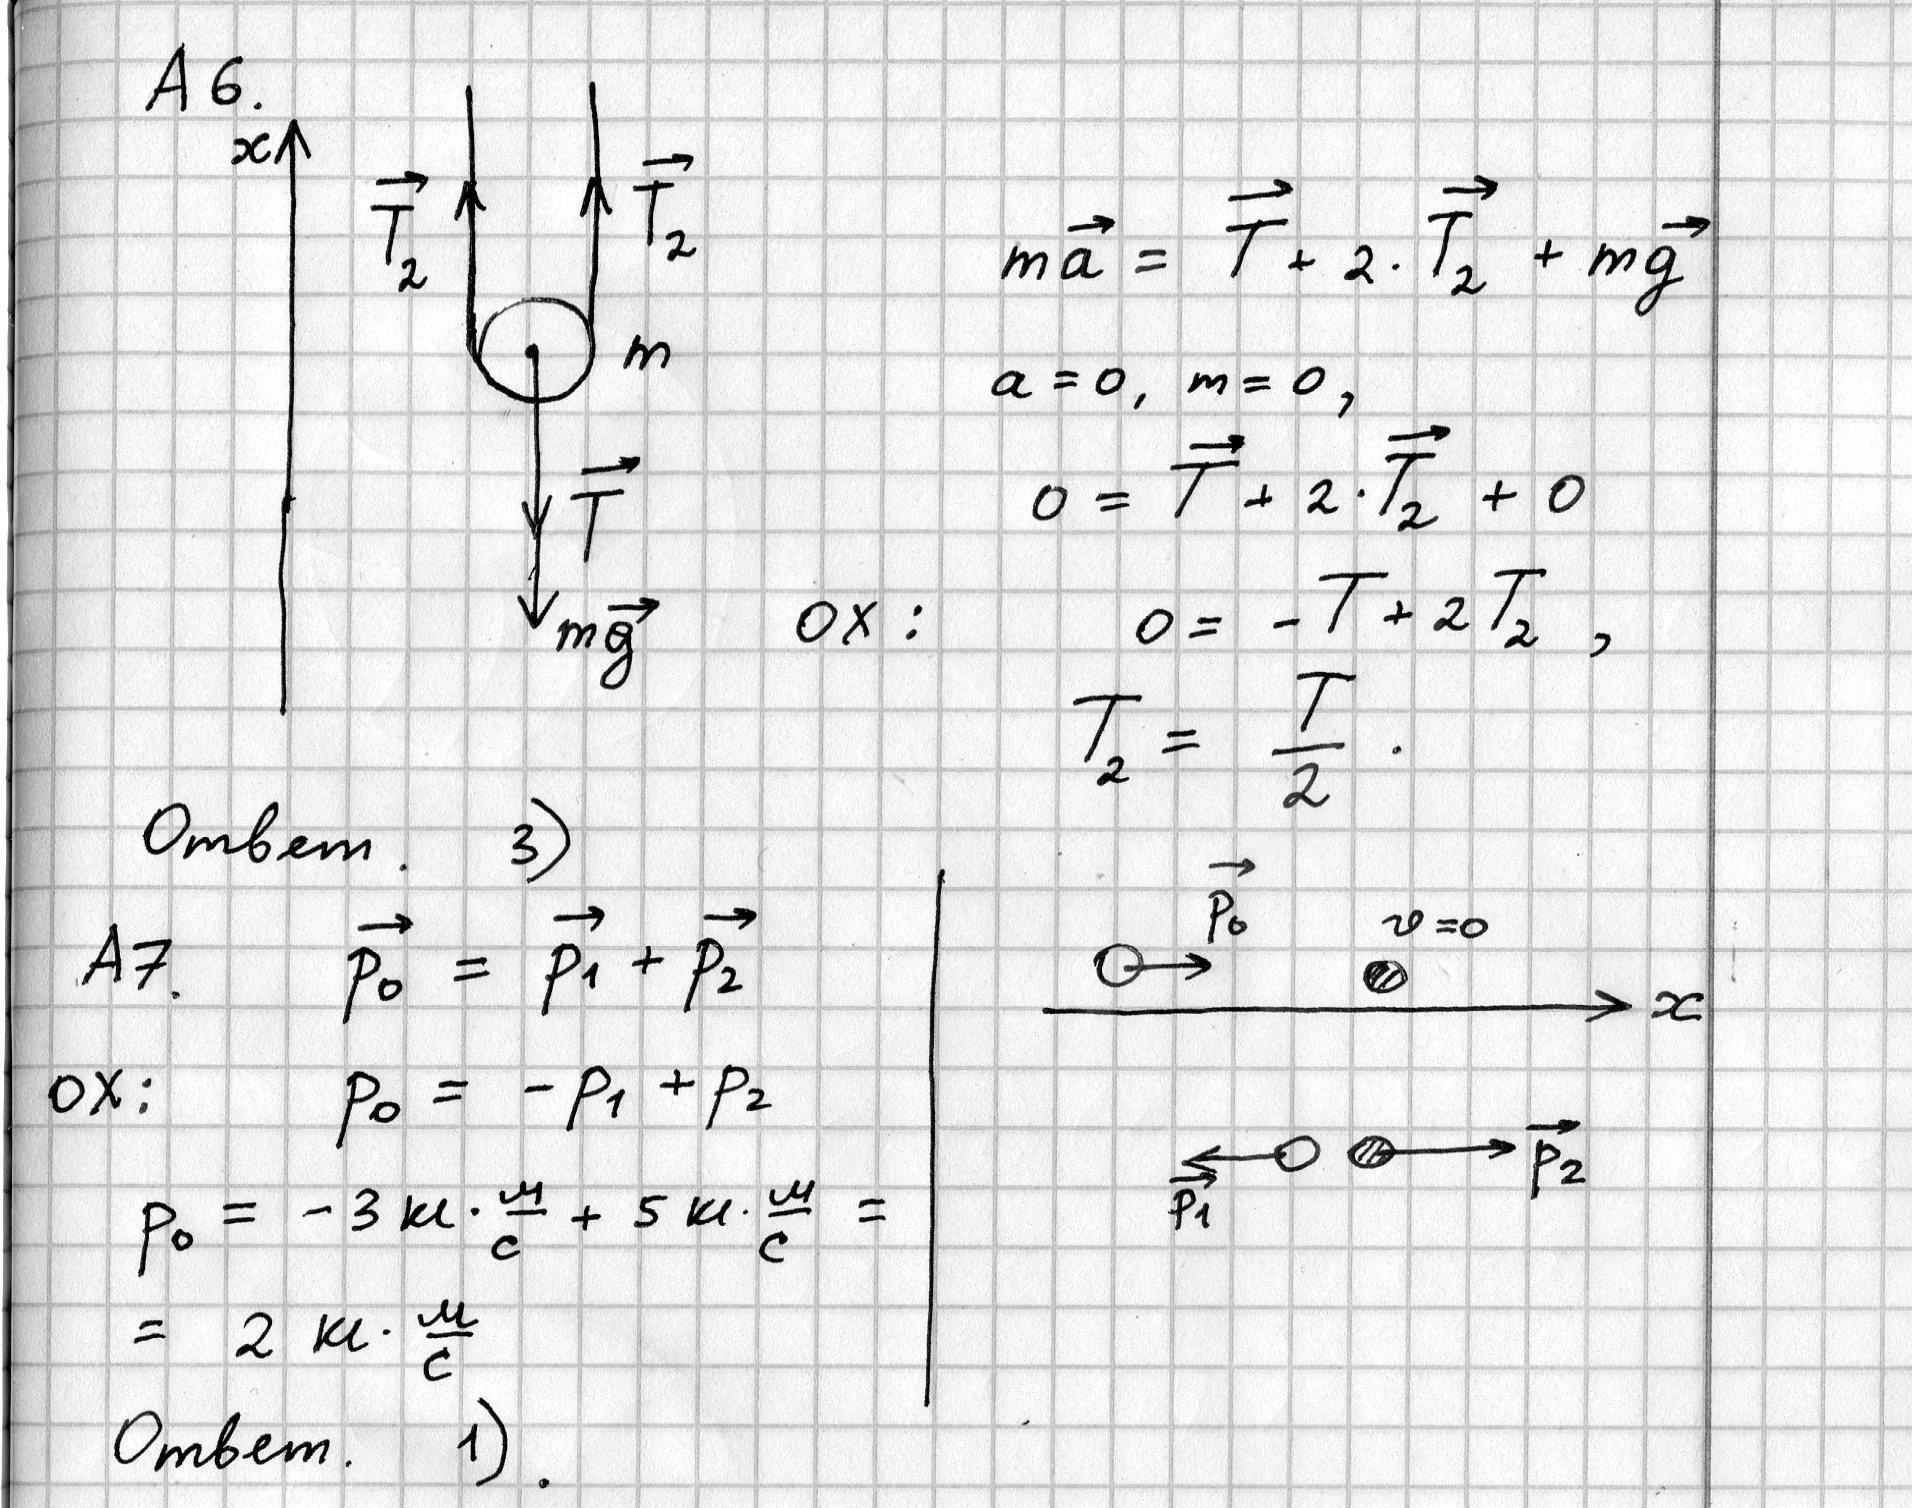 А6.
x
T⃗₂ T⃗₂
m
T⃗
mg⃗
ma⃗ = T⃗ + 2·T⃗₂ + mg⃗
a = 0, m = 0,
0 = T⃗ + 2·T⃗₂ + 0
OX: 0 = -T + 2T₂,
T₂ = T/2.
Ответ. 3)
А7. p⃗₀ = p⃗₁ + p⃗₂
OX: p₀ = -p₁ + p₂
p₀ = -3 кг·м/с + 5 кг·м/с =
= 2 кг·м/с
Ответ. 1).
p⃗₀ v=0
x
p⃗₁ p⃗₂